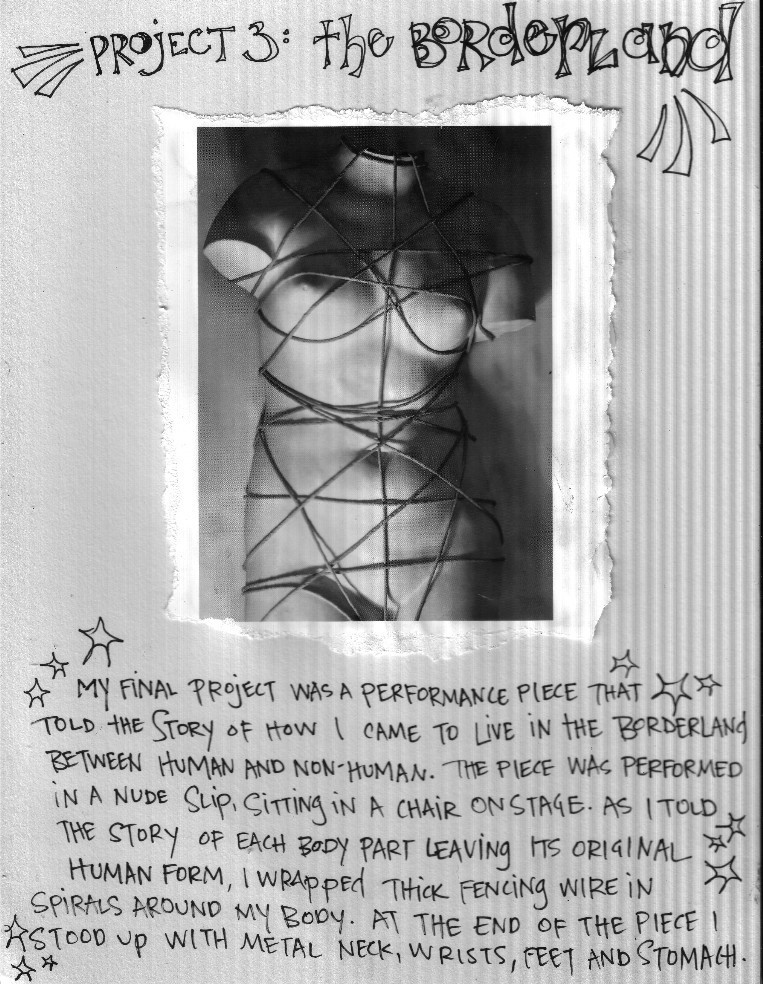 PROJECT 3: the BORDERLAND
MY FINAL PROJECT WAS A PERFORMANCE PIECE THAT
TOLD THE STORY OF HOW I CAME TO LIVE IN THE BORDERLAND
BETWEEN HUMAN AND NON-HUMAN. THE PIECE WAS PERFORMED
IN A NUDE SLIP, SITTING IN A CHAIR ON STAGE. AS I TOLD
THE STORY OF EACH BODY PART LEAVING ITS ORIGINAL
HUMAN FORM, I WRAPPED THICK FENCING WIRE IN
SPIRALS AROUND MY BODY. AT THE END OF THE PIECE I
STOOD UP WITH METAL NECK, WRISTS, FEET AND STOMACH.